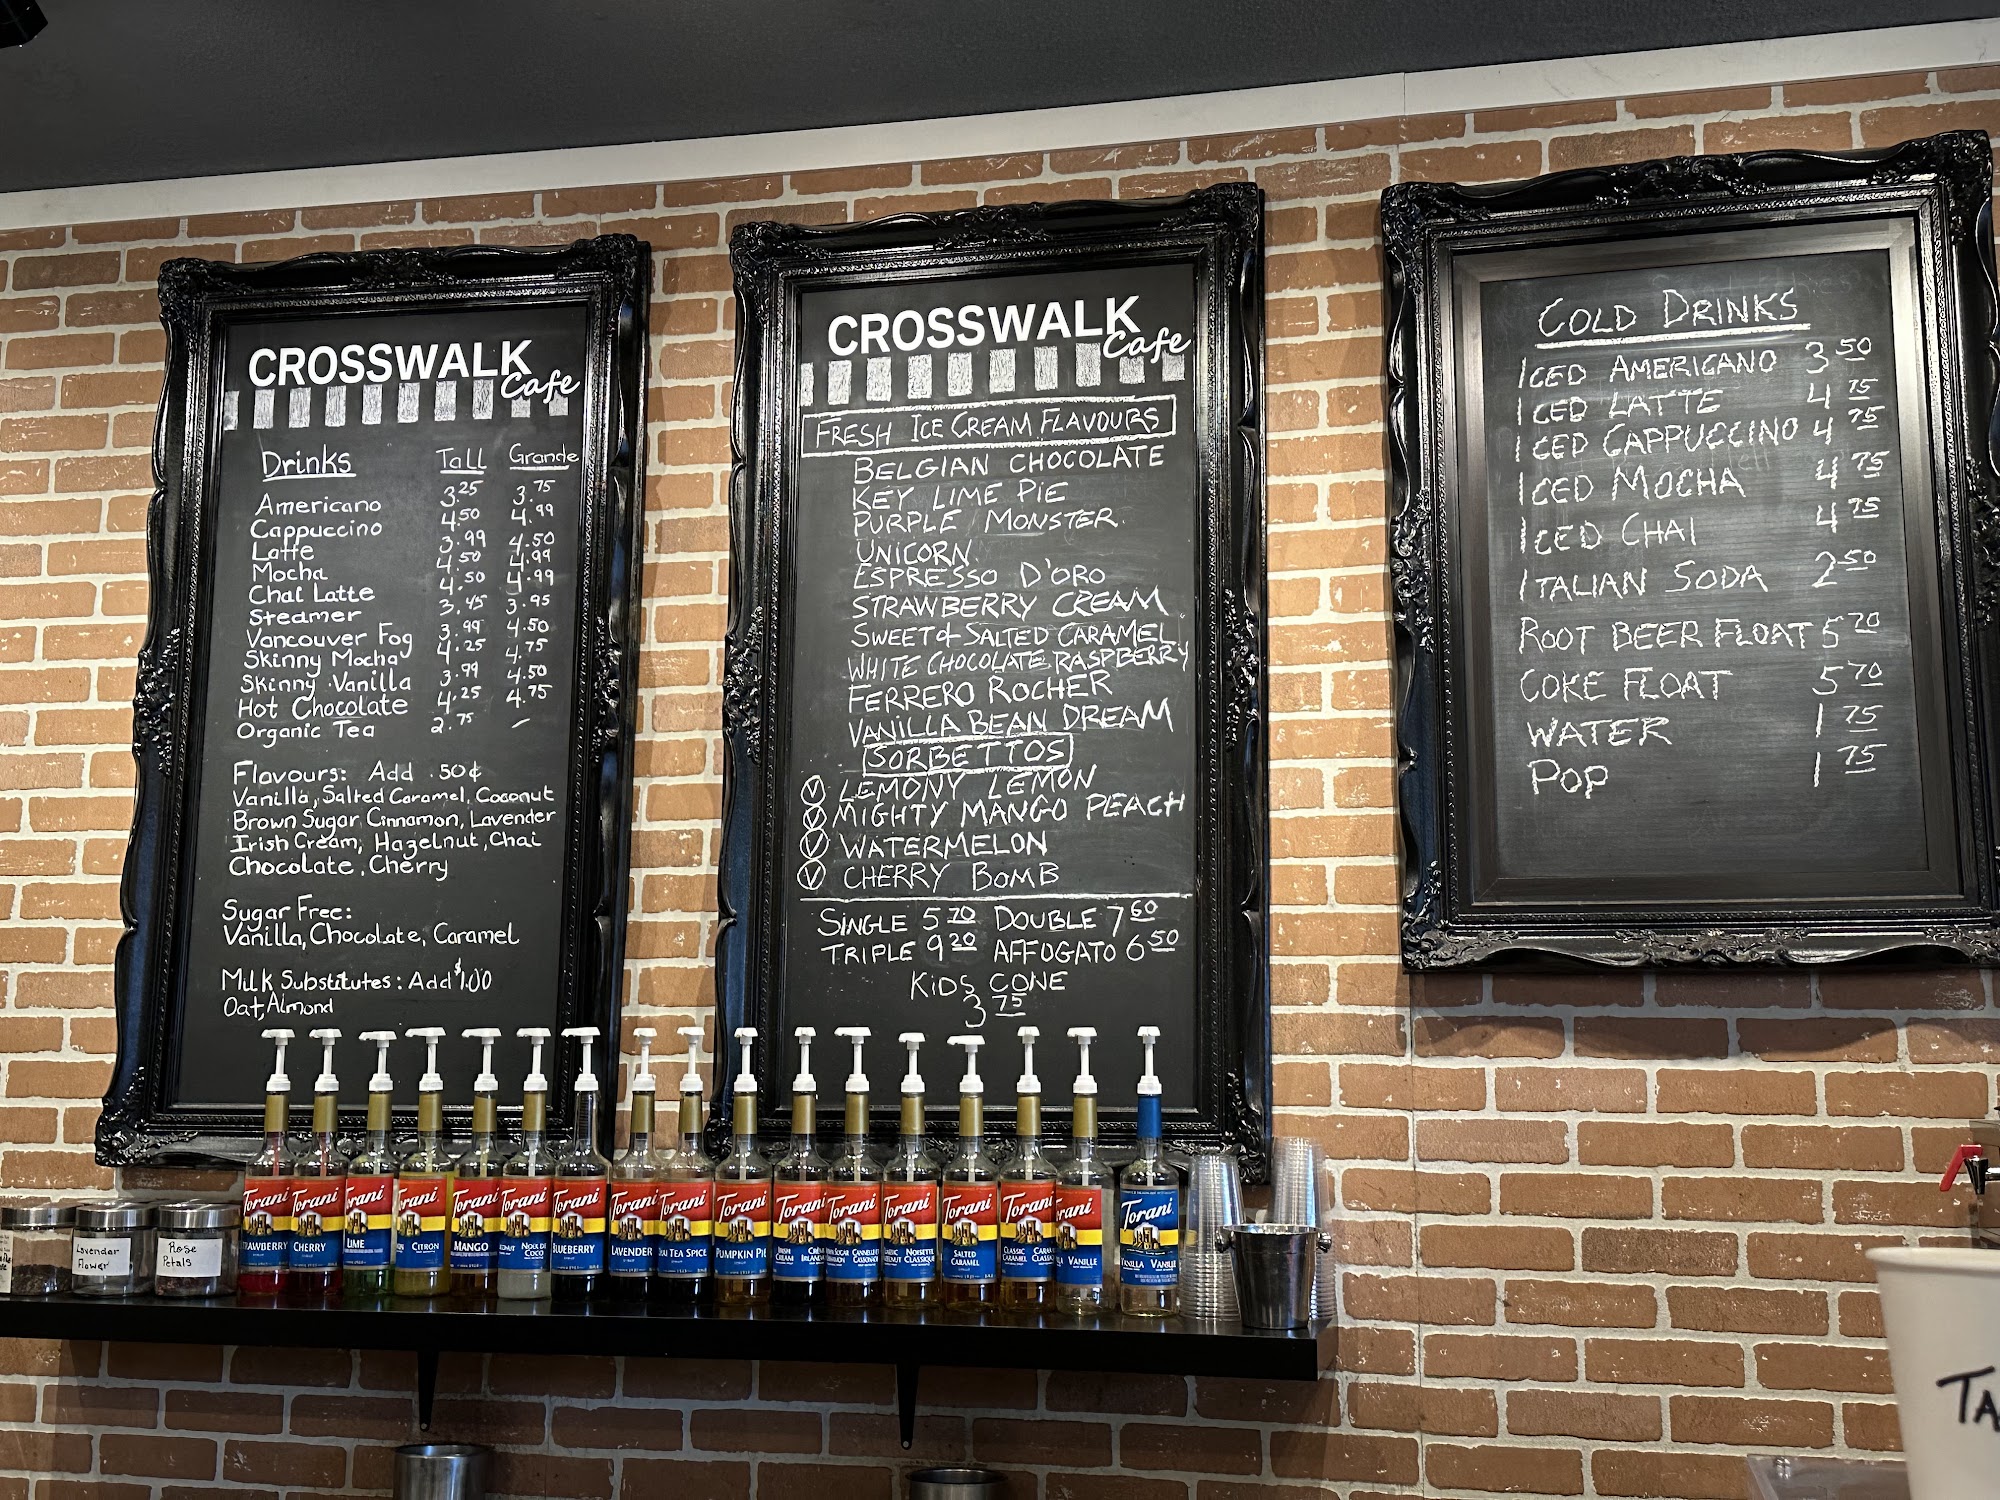 CROSSWALK
Cafe
Drinks Tall Grande
Americano 3.25 3.75
Cappuccino 4.50 4.99
Latte 3.99 4.50
Mocha 4.50 4.99
Chai Latte 4.50 4.99
Steamer 3.45 3.95
Vancouver Fog 3.99 4.50
Skinny Mocha 4.25 4.75
Skinny Vanilla 3.99 4.50
Hot Chocolate 4.25 4.75
Organic Tea 2.75 –
Flavours: Add .50¢
Vanilla, Salted Caramel, Coconut
Brown Sugar Cinnamon, Lavender
Irish Cream, Hazelnut, Chai
Chocolate, Cherry
Sugar Free:
Vanilla, Chocolate, Caramel
Milk Substitutes: Add $1.00
Oat, Almond
CROSSWALK
Cafe
FRESH ICE CREAM FLAVOURS
BELGIAN CHOCOLATE
KEY LIME PIE
PURPLE MONSTER
UNICORN
ESPRESSO D'ORO
STRAWBERRY CREAM
SWEET & SALTED CARAMEL
WHITE CHOCOLATE RASPBERRY
FERRERO ROCHER
VANILLA BEAN DREAM
SORBETTOS
V LEMONY LEMON
V MIGHTY MANGO PEACH
V WATERMELON
V CHERRY BOMB
SINGLE 5 70 DOUBLE 7 60
TRIPLE 9 20 AFFOGATO 6 50
KIDS CONE
3 75
COLD DRINKS
ICED AMERICANO 3 50
ICED LATTE 4 75
ICED CAPPUCCINO 4 75
ICED MOCHA 4 75
ICED CHAI 4 75
ITALIAN SODA 2 50
ROOT BEER FLOAT 5 70
COKE FLOAT 5 70
WATER 1 75
POP 1 75
Lavender
Flower
Rose
Petals
Torani
Torani
CHERRY
Torani
LIME
Torani
CITRON
Torani
MANGO
Torani
NOIX DE
COCO
Torani
BLUEBERRY
Torani
LAVENDER
Torani
TEA SPICE
Torani
PUMPKIN PIE
Torani
IRISH
CREAM
Torani
Torani
NOISETTE
CLASSIQUE
Torani
SALTED
CARAMEL
Torani
CLASSIC
CARAMEL
VANILLE
Torani
VANILLA VANILLE